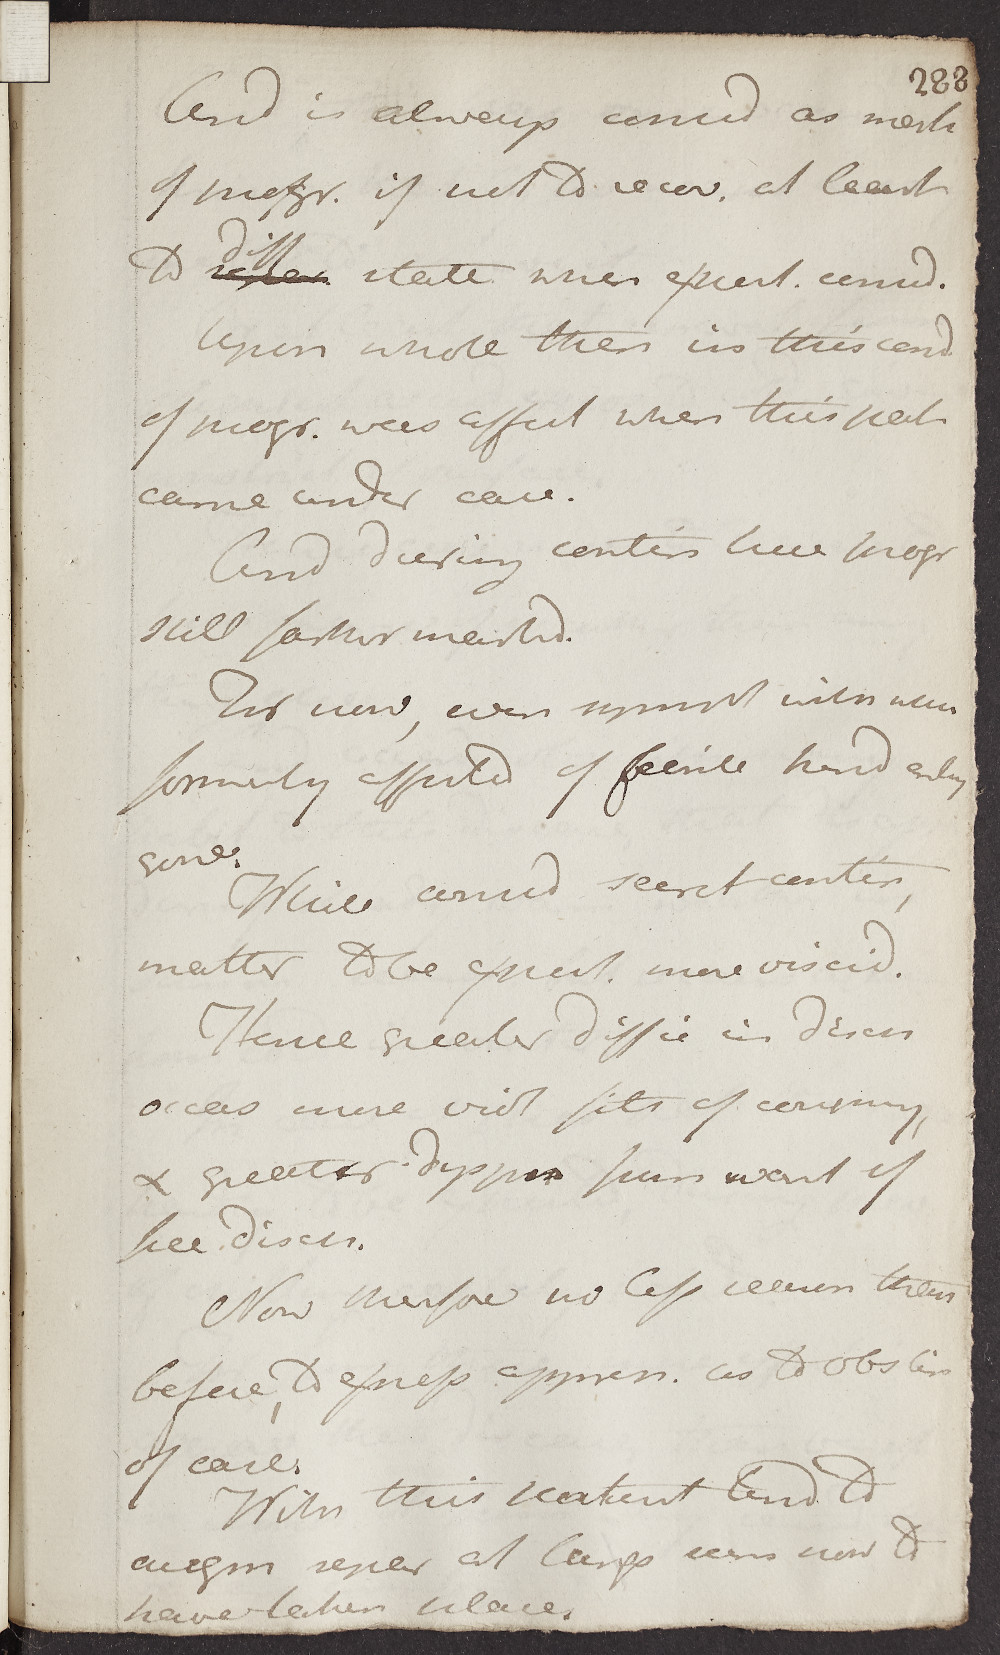 288
And is always consid as mark
of progr. if not to recov. at least
to diff state when expect. consid.
Upon whole then in this cond
of progr. was affect when this pat
came under care.
And during contin here progr
still farther marked.
For now, even sympt with wh
formerly affected of febrile kind enty
gone.
While consid secret contin,
matter to be expect. more viscid.
Hence greater diffic in disch
occas more viol fits of coughing,
& greater dyspn from want of
free disch.
Now therfore no less reason than
before, to express appreh. as to obstin
of case.
With this patient tend to
augm repeat at length seems now to
have taken place.